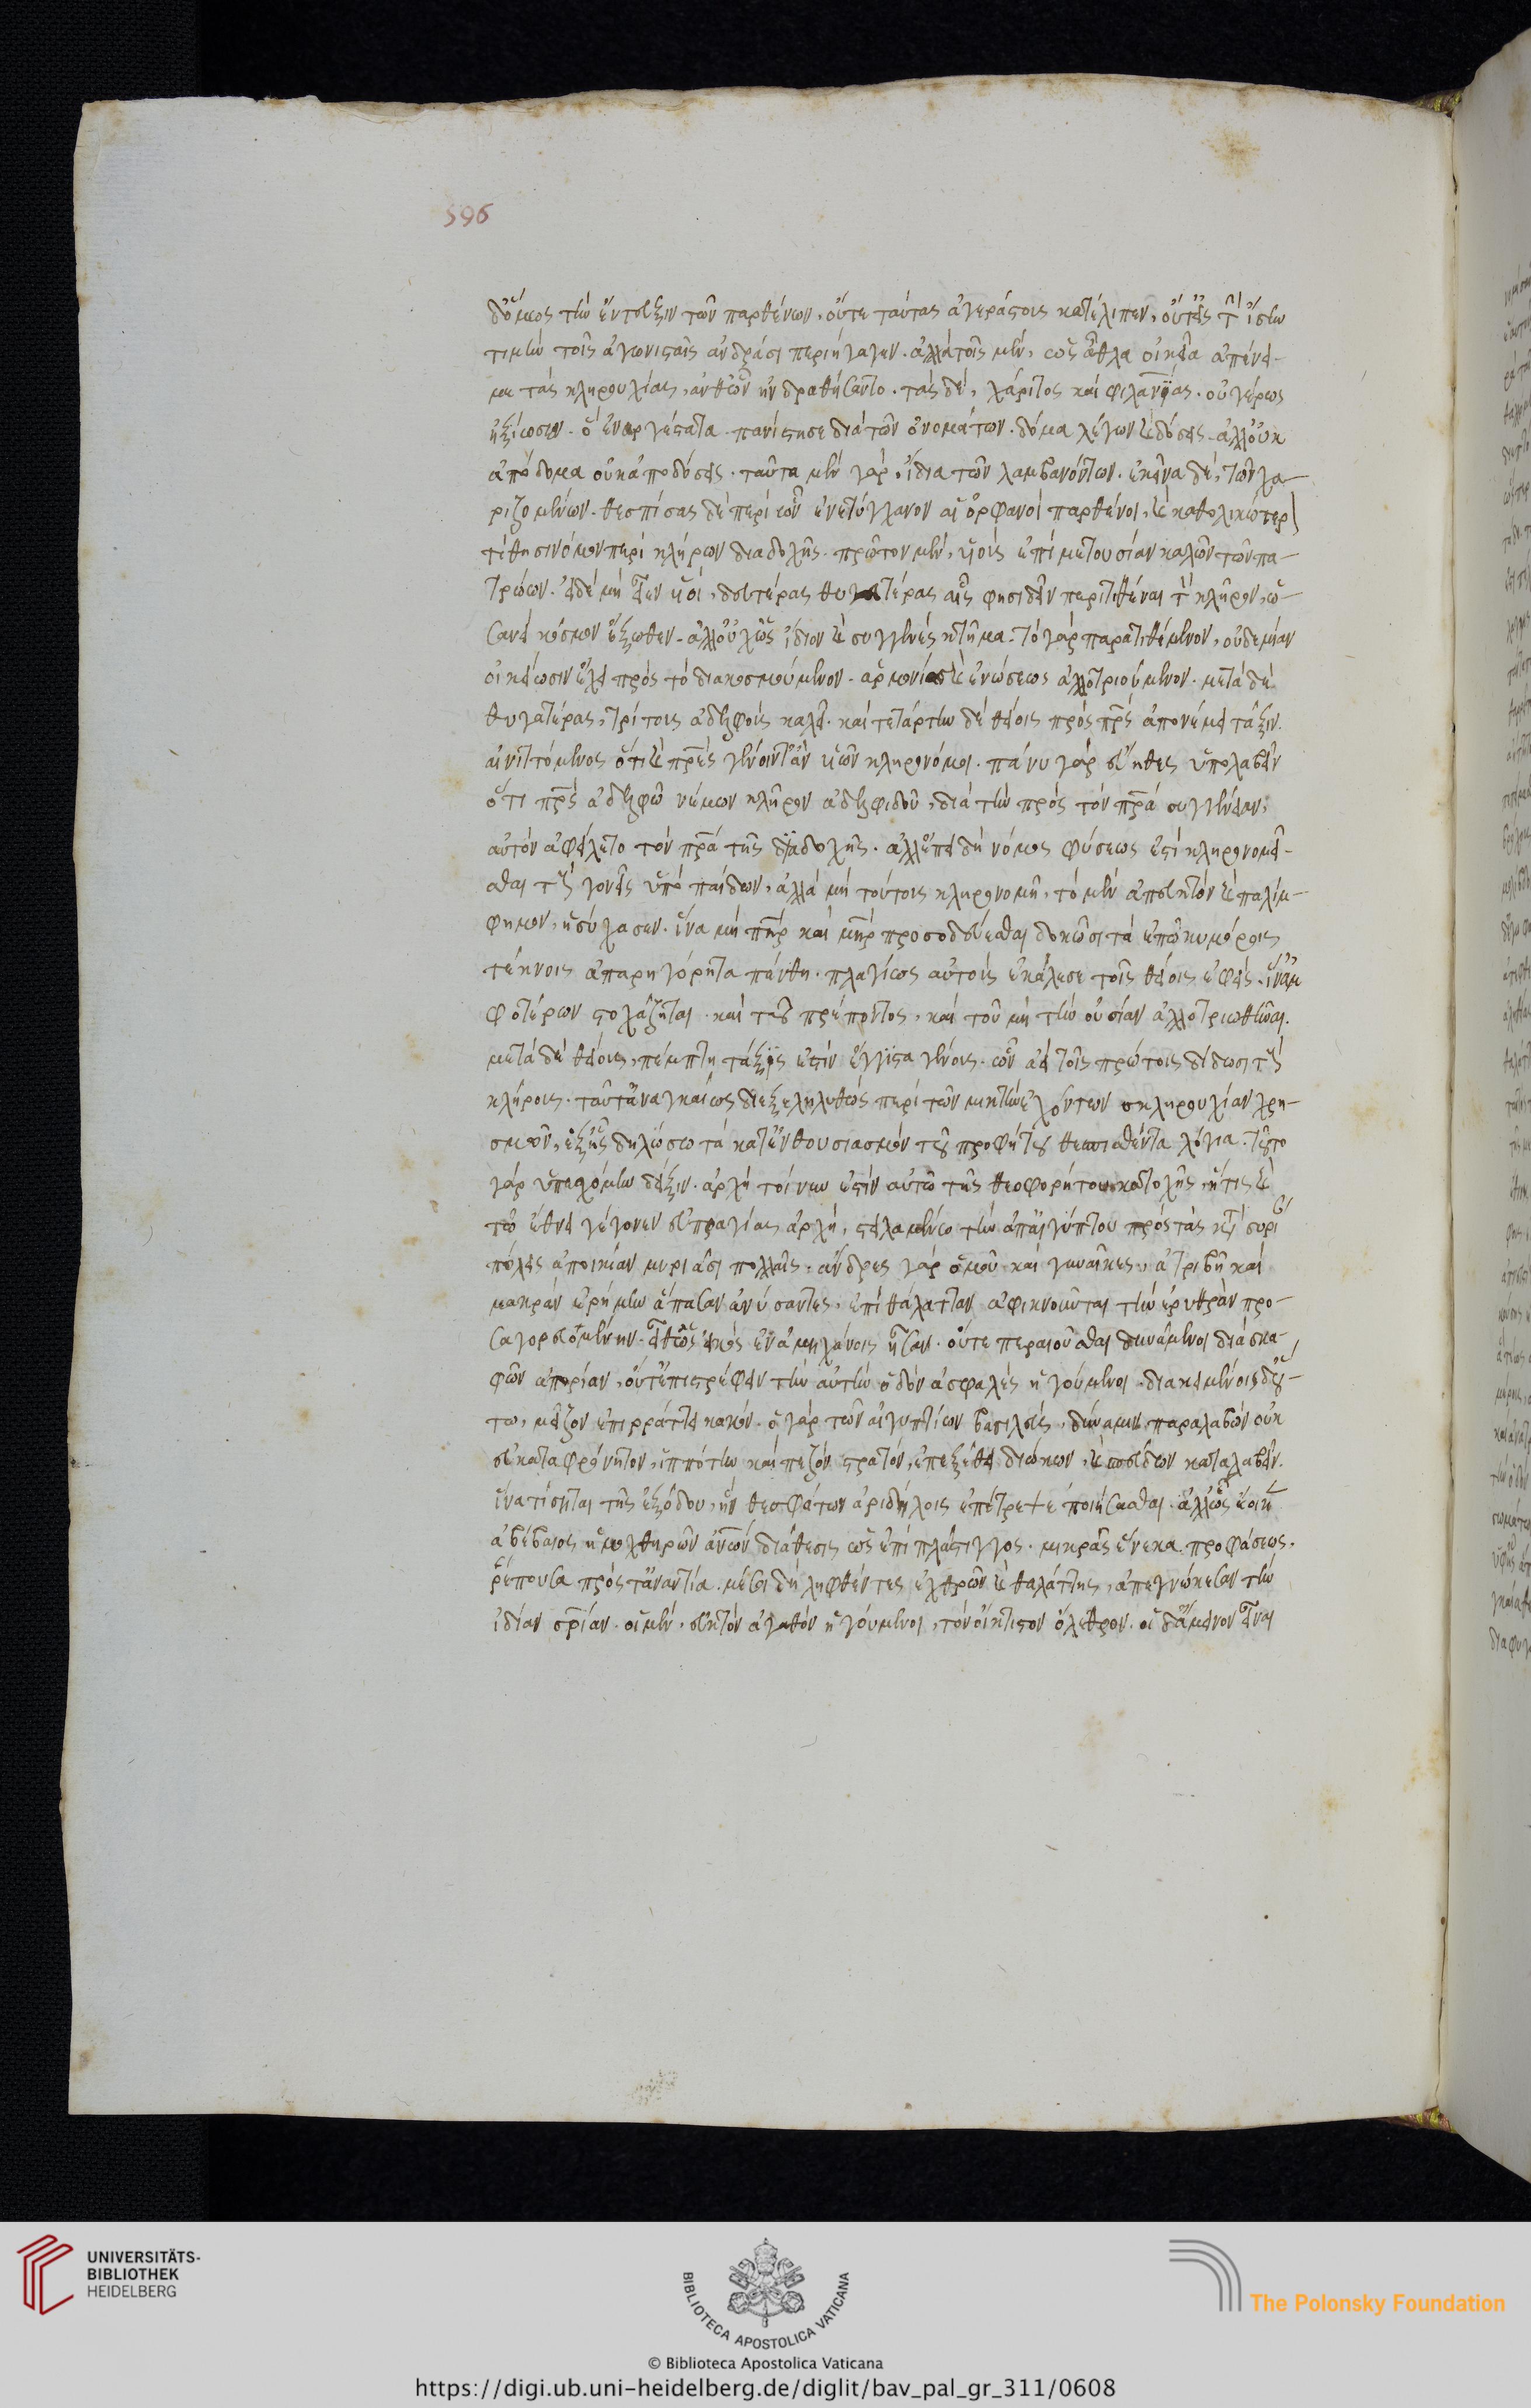 596
δόμενος τὴν ἔντευξιν τῶν παρθένων, οὔτε ταύτας ἀγεράστους κατέλιπεν, οὔτ' εἰς τὴν ἴσην
τιμὴν τοῖς ἀγωνισταῖς ἀνδράσι περιήγαγεν. ἀλλὰ τοῖς μὲν, ὡς ἆθλα οἰκεῖα ἀπένει-
με τὰς κληρουχίας, ἀνθ' ὧν ἠνδραγαθήσαντο. τὰς δὲ, χάριτος καὶ φιλανθρωπίας. οὐ γέρως
ἠξίωσεν. ὃ ἐναργέστατα παρίστησι διὰ τῶν ὀνομάτων. δόμα λέγων καὶ δώσεις. ἀλλ' οὐκ
ἀπόδομα οὐκ ἀποδώσεις. ταῦτα μὲν γὰρ, ἴδια τῶν λαμβανόντων. ἐκεῖνα δὲ, τῶν χα-
ριζομένων. θεσπίσας δὲ περὶ ὧν ἐνετύγχανον αἱ ὀρφαναὶ παρθένοι, καὶ καθολικώτερον
τίθησι νόμον περὶ κλήρων διαδοχῆς. πρῶτον μὲν, υἱοὺς ἐπὶ μετουσίαν καλῶν τῶν πα-
τρώων. εἰ δὲ μὴ εἶεν υἱοὶ, δευτέρας θυγατέρας αἷς φησι δεῖν περιτιθέναι τὸν κλῆρον, ὡ-
σανεὶ κόσμον ἔξωθεν. ἀλλ' οὐχ ὡς ἴδιον καὶ συγγενὲς κτῆμα. τὸ γὰρ παρατιθέμενον, οὐδεμίαν
οἰκείωσιν ἔχει πρὸς τὸ διακοσμούμενον. ἁρμονίας καὶ ἑνώσεως ἀλλοτριούμενον. μετὰ δὲ
θυγατέρας, τρίτους ἀδελφοὺς καλεῖ. καὶ τετάρτην δὲ θείοις πρὸς πατρὸς ἀπονέμει τάξιν.
αἰνιττόμενος ὅτι καὶ πατέρες γένοιντ' ἂν υἱῶν κληρονόμοι. πάνυ γὰρ εὔηθες ὑπολαβεῖν
ὅτι πατρὸς ἀδελφῷ νέμων κλῆρον ἀδελφιδοῦ, διὰ τὴν πρὸς τὸν πατέρα συγγένειαν,
αὐτὸν ἀφείλετο τὸν πατέρα τῆς διαδοχῆς. ἀλλ' ἐπειδὴ νόμος φύσεως ἐστὶ κληρονομεῖ-
σθαι τοὺς γονεῖς ὑπὸ παίδων, ἀλλὰ μὴ τούτους κληρονομεῖν, τὸ μὲν ἀπευκτὸν καὶ παλίμ-
φημον, ἡσύχασεν. ἵνα μὴ πατὴρ καὶ μήτηρ προσοδεύεσθαι δοκῶσι τὰ ἐπ' ὠκυμόροις
τέκνοις ἀπαρηγόρητα πένθη. πλαγίως αὐτοὺς ἐκάλεσε τοῖς θείοις ἐφεὶς. ἵν' ἀμ
φοτέρων στοχάζηται. καὶ τοῦ πρέποντος, καὶ τοῦ μὴ τὴν οὐσίαν ἀλλοτριωθῆναι.
μετὰ δὲ θείους, πέμπτη τάξις ἐστὶν ἔγγιστα γένους. ὧν ἀεὶ τοῖς πρώτοις δίδωσι τοὺς
κλήρους. ταῦτ' ἀναγκαίως διεξεληλυθὼς περὶ τῶν μικτὴν ἐχόντων κληρουχίαν χρη-
σμῶν, ἑξῆς δηλώσω τὰ κατ' ἐνθουσιασμὸν τοῦ προφήτου θεσπισθέντα λόγια. τοῦτο
γὰρ ὑπεσχόμην δείξειν. ἀρχὴ τοίνυν ἐστὶν αὐτῷ τῆς θεοφορήτου κατοχῆς, ἥτις καὶ
τῷ ἔθνει γέγονεν εὐπραγίας ἀρχὴ, στειλαμένῳ τὴν ἀπ' αἰγύπτου πρὸς τὰς κατὰ συρίαν
πόλεις ἀποικίαν μυριάσι πολλαῖς. ἄνδρες γὰρ ὁμοῦ καὶ γυναῖκες, ἀτριβῆ καὶ
μακρὰν ἐρήμην ἅπασαν ἀνύσαντες, ἐπὶ θάλατταν ἀφικνοῦνται τὴν ἐρυθρὰν προ-
σαγορευομένην. εἶθ' ὡς εἰκὸς ἐν ἀμηχάνοις ἦσαν. οὔτε περαιοῦσθαι δυνάμενοι διὰ σκα-
φῶν ἀπορίαν, οὔτ' ἐπιστρέφειν τὴν αὐτὴν ὁδὸν ἀσφαλὲς ἡγούμενοι. διακειμένοις δ' οὕ-
τω, μεῖζον ἐπιρράττει κακόν. ὁ γὰρ τῶν αἰγυπτίων βασιλεὺς, δύναμιν παραλαβὼν οὐκ
εὐκαταφρόνητον, ἱππότην καὶ πεζὸν στρατὸν, ἐπεξέθει διώκων, καὶ σπεύδων καταλαβεῖν.
ἵνα τίσηται τῆς ἐξόδου, ἣν θεσφάτων ἀριδήλοις ἐπέτρεψε ποιήσασθαι. ἀλλ' ὡς ἔοικεν
ἀβέβαιος ἡ μοχθηρῶν ἀνθρώπων διάθεσις ὡς ἐπὶ πλάστιγγος. μικρᾶς ἕνεκα προφάσεως.
ῥέπουσα πρὸς τἀναντία. μέσοι δὴ ληφθέντες ἐχθρῶν καὶ θαλάττης, ἀπεγνώκεσαν τὴν
ἰδίαν σωτηρίαν. οἱ μὲν, εὐκτὸν ἀγαθὸν ἡγούμενοι, τὸν οἴκτιστον ὄλεθρον. οἱ δ' ἄμεινον εἶναι
UNIVERSITÄTS-
BIBLIOTHEK
HEIDELBERG
BIBLIOTECA APOSTOLICA VATICANA
The Polonsky Foundation
© Biblioteca Apostolica Vaticana
https://digi.ub.uni-heidelberg.de/diglit/bav_pal_gr_311/0608